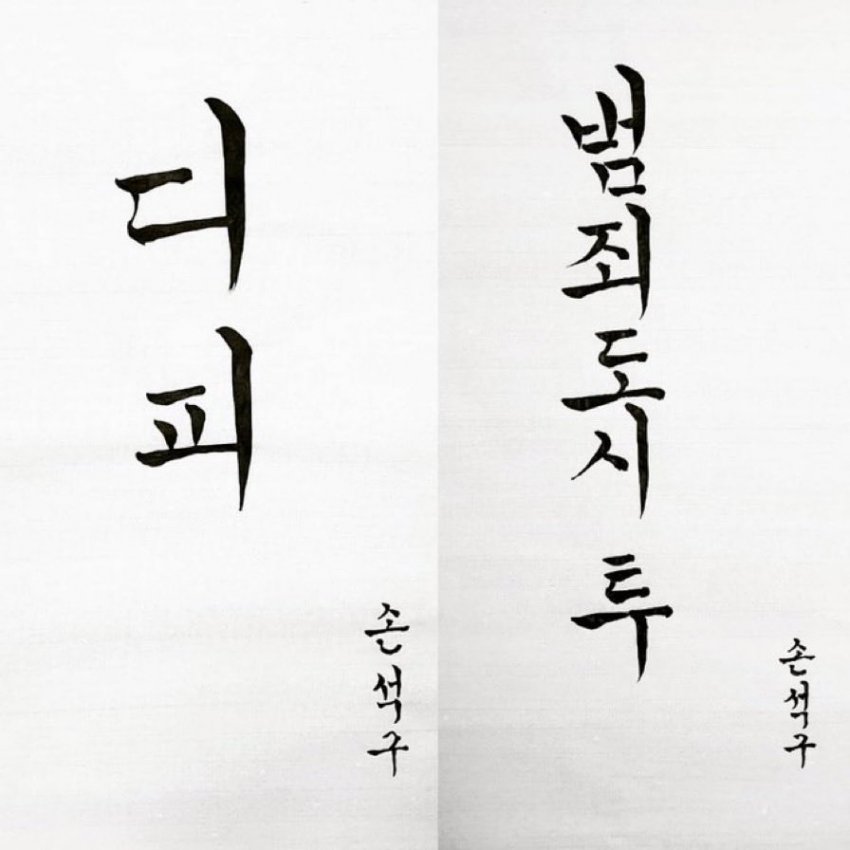 디피
손석구
범죄도시 투
손석구